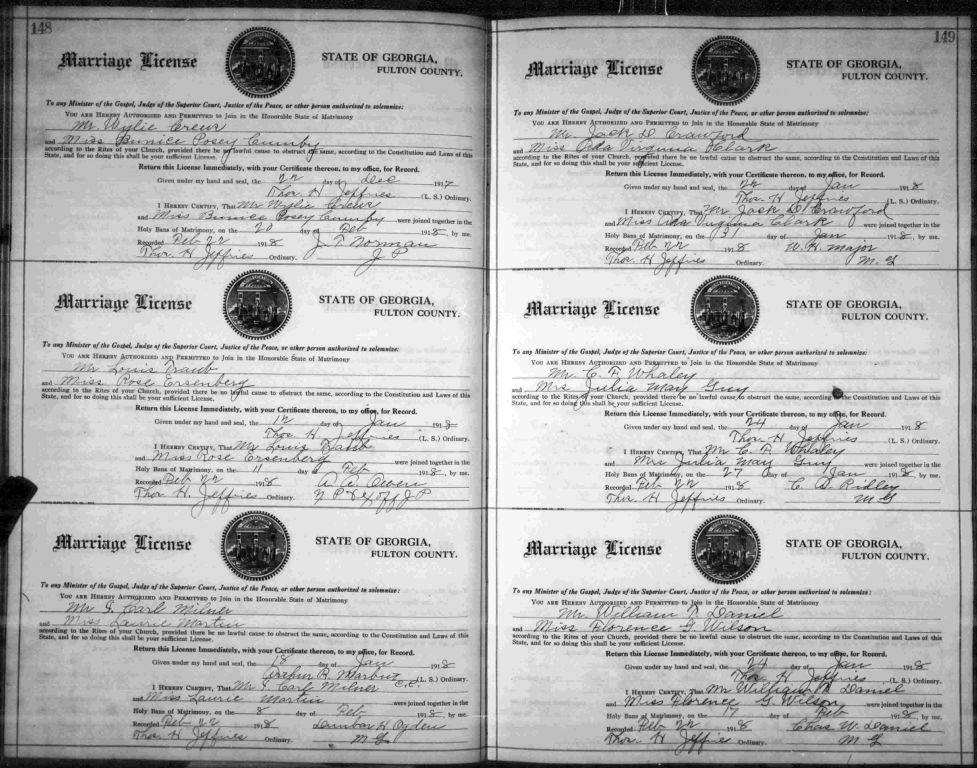 148
Marriage License
STATE OF GEORGIA,
FULTON COUNTY.
To any Minister of the Gospel, Judge of the Superior Court, Justice of the Peace, or other person authorized to solemnize:
YOU ARE HEREBY AUTHORIZED AND PERMITTED to Join in the Honorable State of Matrimony
Mr. Wylie Crew
and Miss Eunice Posey Cumby
according to the Rites of your Church, provided there be no lawful cause to obstruct the same, according to the Constitution and Laws of this
State, and for so doing this shall be your sufficient License.
Return this License Immediately, with your Certificate thereon, to my office, for Record.
Given under my hand and seal, the 22 day of Dec 1917
Thos. H. Jeffries (L. S.) Ordinary.
I HEREBY CERTIFY, That Mr Wylie Crew
and Miss Eunice Posey Cumby were joined together in the
Holy Bans of Matrimony, on the 20 day of Feb 1918, by me.
Recorded Feb 22 1918 J. T. Norman
Thos. H Jeffries Ordinary. J P
Marriage License
STATE OF GEORGIA,
FULTON COUNTY.
To any Minister of the Gospel, Judge of the Superior Court, Justice of the Peace, or other person authorized to solemnize:
YOU ARE HEREBY AUTHORIZED AND PERMITTED to Join in the Honorable State of Matrimony
Mr Louis Traub
and Miss Rose Ersenberg
according to the Rites of your Church, provided there be no lawful cause to obstruct the same, according to the Constitution and Laws of this
State, and for so doing this shall be your sufficient License.
Return this License Immediately, with your Certificate thereon, to my office, for Record.
Given under my hand and seal, the 12 day of Jan 1918
Thos H Jeffries (L. S.) Ordinary.
I HEREBY CERTIFY, That Mr Louis Traub
and Miss Rose Ersenberg were joined together in the
Holy Bans of Matrimony, on the 11 day of Feb 1918, by me.
Recorded Feb 22 1918 Owen
Thos H. Jeffries Ordinary. N P & Ex Off J P
Marriage License
STATE OF GEORGIA,
FULTON COUNTY.
To any Minister of the Gospel, Judge of the Superior Court, Justice of the Peace, or other person authorized to solemnize:
YOU ARE HEREBY AUTHORIZED AND PERMITTED to Join in the Honorable State of Matrimony
Mr Carl Milner
and Miss Laurie Martin
according to the Rites of your Church, provided there be no lawful cause to obstruct the same, according to the Constitution and Laws of this
State, and for so doing this shall be your sufficient License.
Return this License Immediately, with your Certificate thereon, to my office, for Record.
Given under my hand and seal, the 18 day of Jan 1918
Arthur R. Marbut C.C. (L. S.) Ordinary.
I HEREBY CERTIFY, That Mr Carl Milner
and Miss Laurie Martin were joined together in the
Holy Bans of Matrimony, on the 8 day of Feb 1918, by me.
Recorded Feb 22 1918 H Ogden
Thos H. Jeffries Ordinary. M G
149
Marriage License
STATE OF GEORGIA,
FULTON COUNTY.
To any Minister of the Gospel, Judge of the Superior Court, Justice of the Peace, or other person authorized to solemnize:
YOU ARE HEREBY AUTHORIZED AND PERMITTED to Join in the Honorable State of Matrimony
Mr. Jack D. Crawford
and Miss Ada Virginia Clark
according to the Rites of your Church, provided there be no lawful cause to obstruct the same, according to the Constitution and Laws of this
State, and for so doing this shall be your sufficient License.
Return this License Immediately, with your Certificate thereon, to my office, for Record.
Given under my hand and seal, the 22 day of Jan 1918
Thos. H Jeffries (L. S.) Ordinary.
I HEREBY CERTIFY, That Mr Jack D. Crawford
and Miss Ada Virginia Clark were joined together in the
Holy Bans of Matrimony, on the 31 day of Jan 1918, by me.
Recorded Feb 22 1918 W. H. Major
Thos H Jeffries Ordinary. M. G
Marriage License
STATE OF GEORGIA,
FULTON COUNTY.
To any Minister of the Gospel, Judge of the Superior Court, Justice of the Peace, or other person authorized to solemnize:
YOU ARE HEREBY AUTHORIZED AND PERMITTED to Join in the Honorable State of Matrimony
Mr. C. F. Whaley
and Mrs Julia May Guy
according to the Rites of your Church, provided there be no lawful cause to obstruct the same, according to the Constitution and Laws of this
State, and for so doing this shall be your sufficient License.
Return this License Immediately, with your Certificate thereon, to my office, for Record.
Given under my hand and seal, the 24 day of Jan 1918
Thos. H Jeffries (L. S.) Ordinary.
I HEREBY CERTIFY, That Mr C. F. Whaley
and Mrs Julia May Guy were joined together in the
Holy Bans of Matrimony, on the 27 day of Jan 1918, by me.
Recorded Feb 22 1918 C. W. Ridley
Thos. H Jeffries Ordinary. M G
Marriage License
STATE OF GEORGIA,
FULTON COUNTY.
To any Minister of the Gospel, Judge of the Superior Court, Justice of the Peace, or other person authorized to solemnize:
YOU ARE HEREBY AUTHORIZED AND PERMITTED to Join in the Honorable State of Matrimony
Mr. William T. Daniel
and Miss Florence G. Wilson
according to the Rites of your Church, provided there be no lawful cause to obstruct the same, according to the Constitution and Laws of this
State, and for so doing this shall be your sufficient License.
Return this License Immediately, with your Certificate thereon, to my office, for Record.
Given under my hand and seal, the 24 day of Jan 1918
Thos. H Jeffries (L. S.) Ordinary.
I HEREBY CERTIFY, That Mr William T. Daniel
and Miss Florence G. Wilson were joined together in the
Holy Bans of Matrimony, on the 17 day of Feb 1918, by me.
Recorded Feb 22 1918 Chas W. Daniel
Thos. H Jeffrie Ordinary. M G